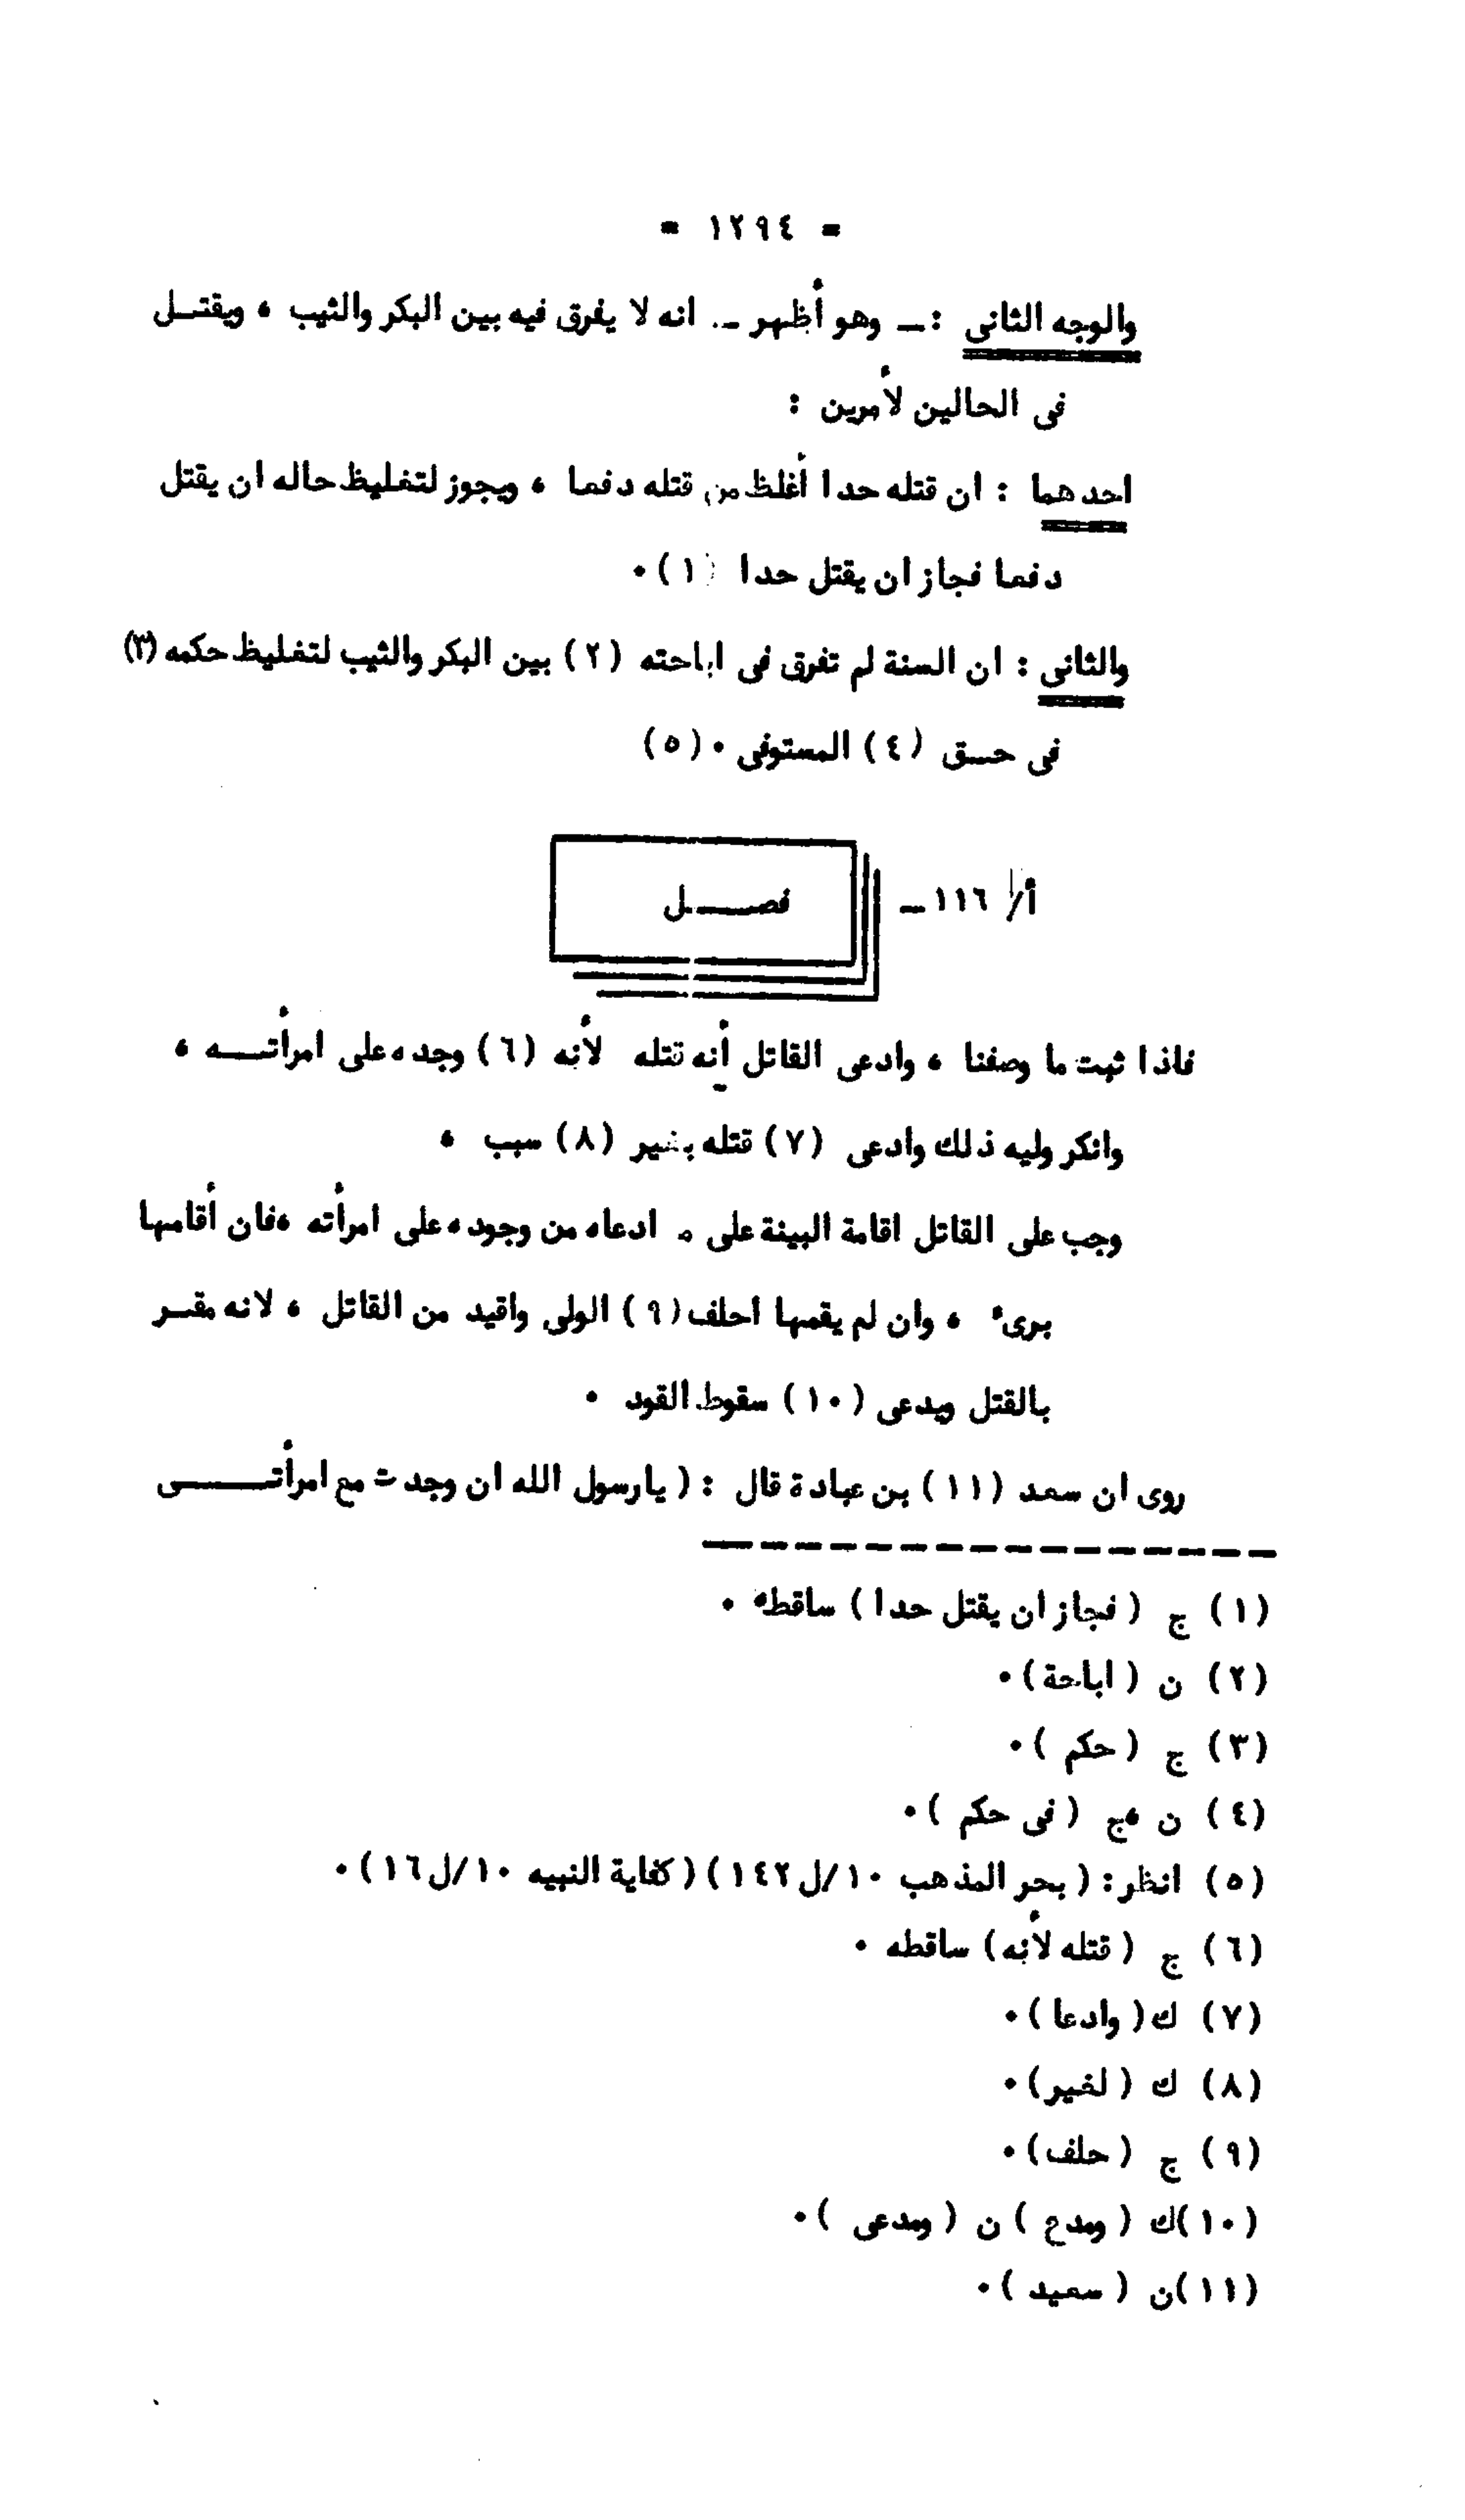 = ١٢٩٤ =
والوجه الثانى :ــ وهو أظهر ــ. انه لا يفرق فيه بين البكر والثيب ، ويقتــل
فى الحالين لأمرين :
احدهما : ان قتله حدا أغلظ من قتله دفعا ، ويجوز لتغليظ حاله ان يقتل
دفعا فجاز ان يقتل حدا (١)٠
والثانى : ان السنة لم تفرق فى اباحته (٢) بين البكر والثيب لتغليظ حكمه (٣)
فى حــق (٤) المستوفى ٠(٥)
أ/ ١١٦ــ فصــــل
فاذا ثبت ما وصفنا ، وادعى القاتل أنه قتله لأنه (٦) وجده على امرأتــــه ،
وانكر وليه ذلك وادعى (٧) قتله بغير (٨) سبب ،
وجب على القاتل اقامة البينة على م ادعاه من وجوده على امرأته ،فان أقامها
برىء ، وان لم يقمها احلف (٩) الولى واقيد من القاتل ، لانه مقــر
بالقتل ويدعى (١٠) سقوط القود ٠
روى ان سعد (١١) بن عبادة قال : ( يارسول الله ان وجدت مع امرأتــــــى
(١) ج ( فجاز ان يقتل حدا ) ساقطه ٠
(٢) ن ( اباحة )٠
(٣) ج ( حكم )٠
(٤) ن ،ج ( فى حكم )٠
(٥) انظر : ( بحر المذهب ١٠/ل١٤٢) ( كفاية النبيه ١٠/ل١٦)٠
(٦) ج ( قتله لأنه) ساقطه ٠
(٧) ك ( وادعا )٠
(٨) ك ( لغير)٠
(٩) ج ( حلف)٠
(١٠)ك ( ومدع ) ن ( ومدعى )٠
(١١)ن ( سعيد )٠